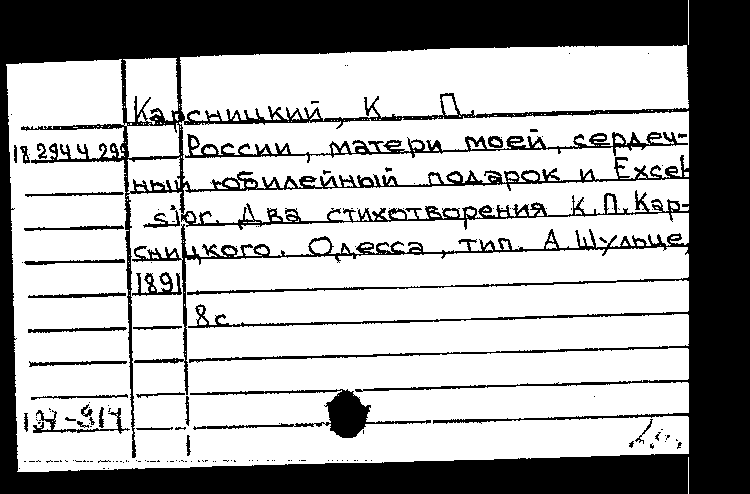 Карсницкий, К. П.
18.294.4.299 России, матери моей, сердеч-
ный юбилейный подарок и Excel-
sior. Два стихотворения К.П.Кар-
сницкого. Одесса, тип. А.Шульце,
1891
8 с.